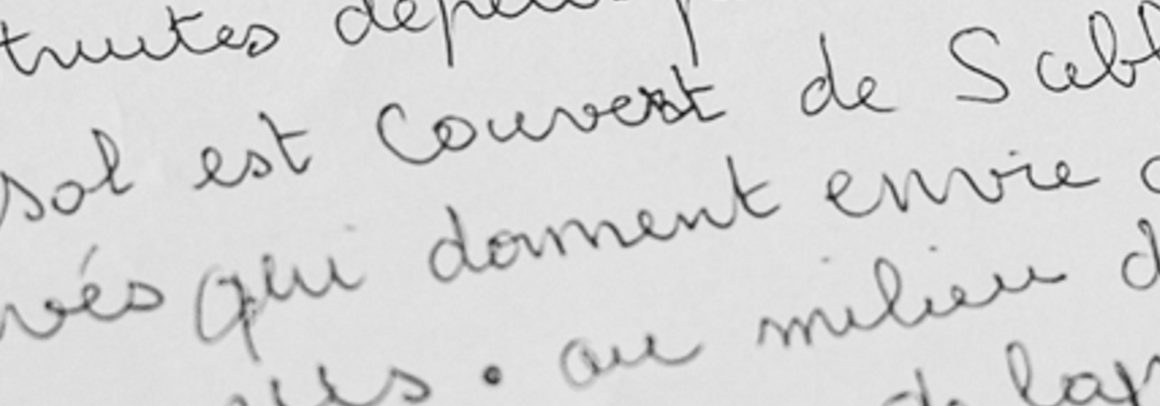 truites
sol est Couvert de Sabl
vés qui donnent envie
. au milieu d